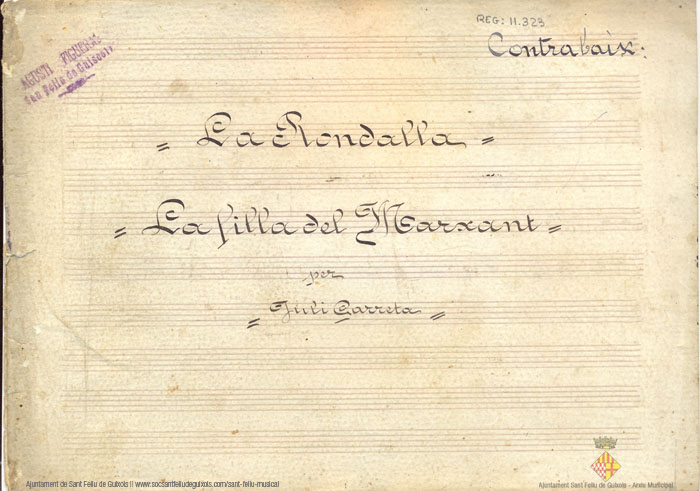 REG: 11.323
Contrabaix.
AGUSTI FIGUERAS
San Feliu de Guixols
= La Rondalla =
= La filla del Marxant =
per
= Juli Garreta =
Ajuntament de Sant Feliu de Guíxols || www.socsantfeliudeguixols.com/sant-feliu-musical
Ajuntament Sant Feliu de Guíxols - Arxiu Municipal